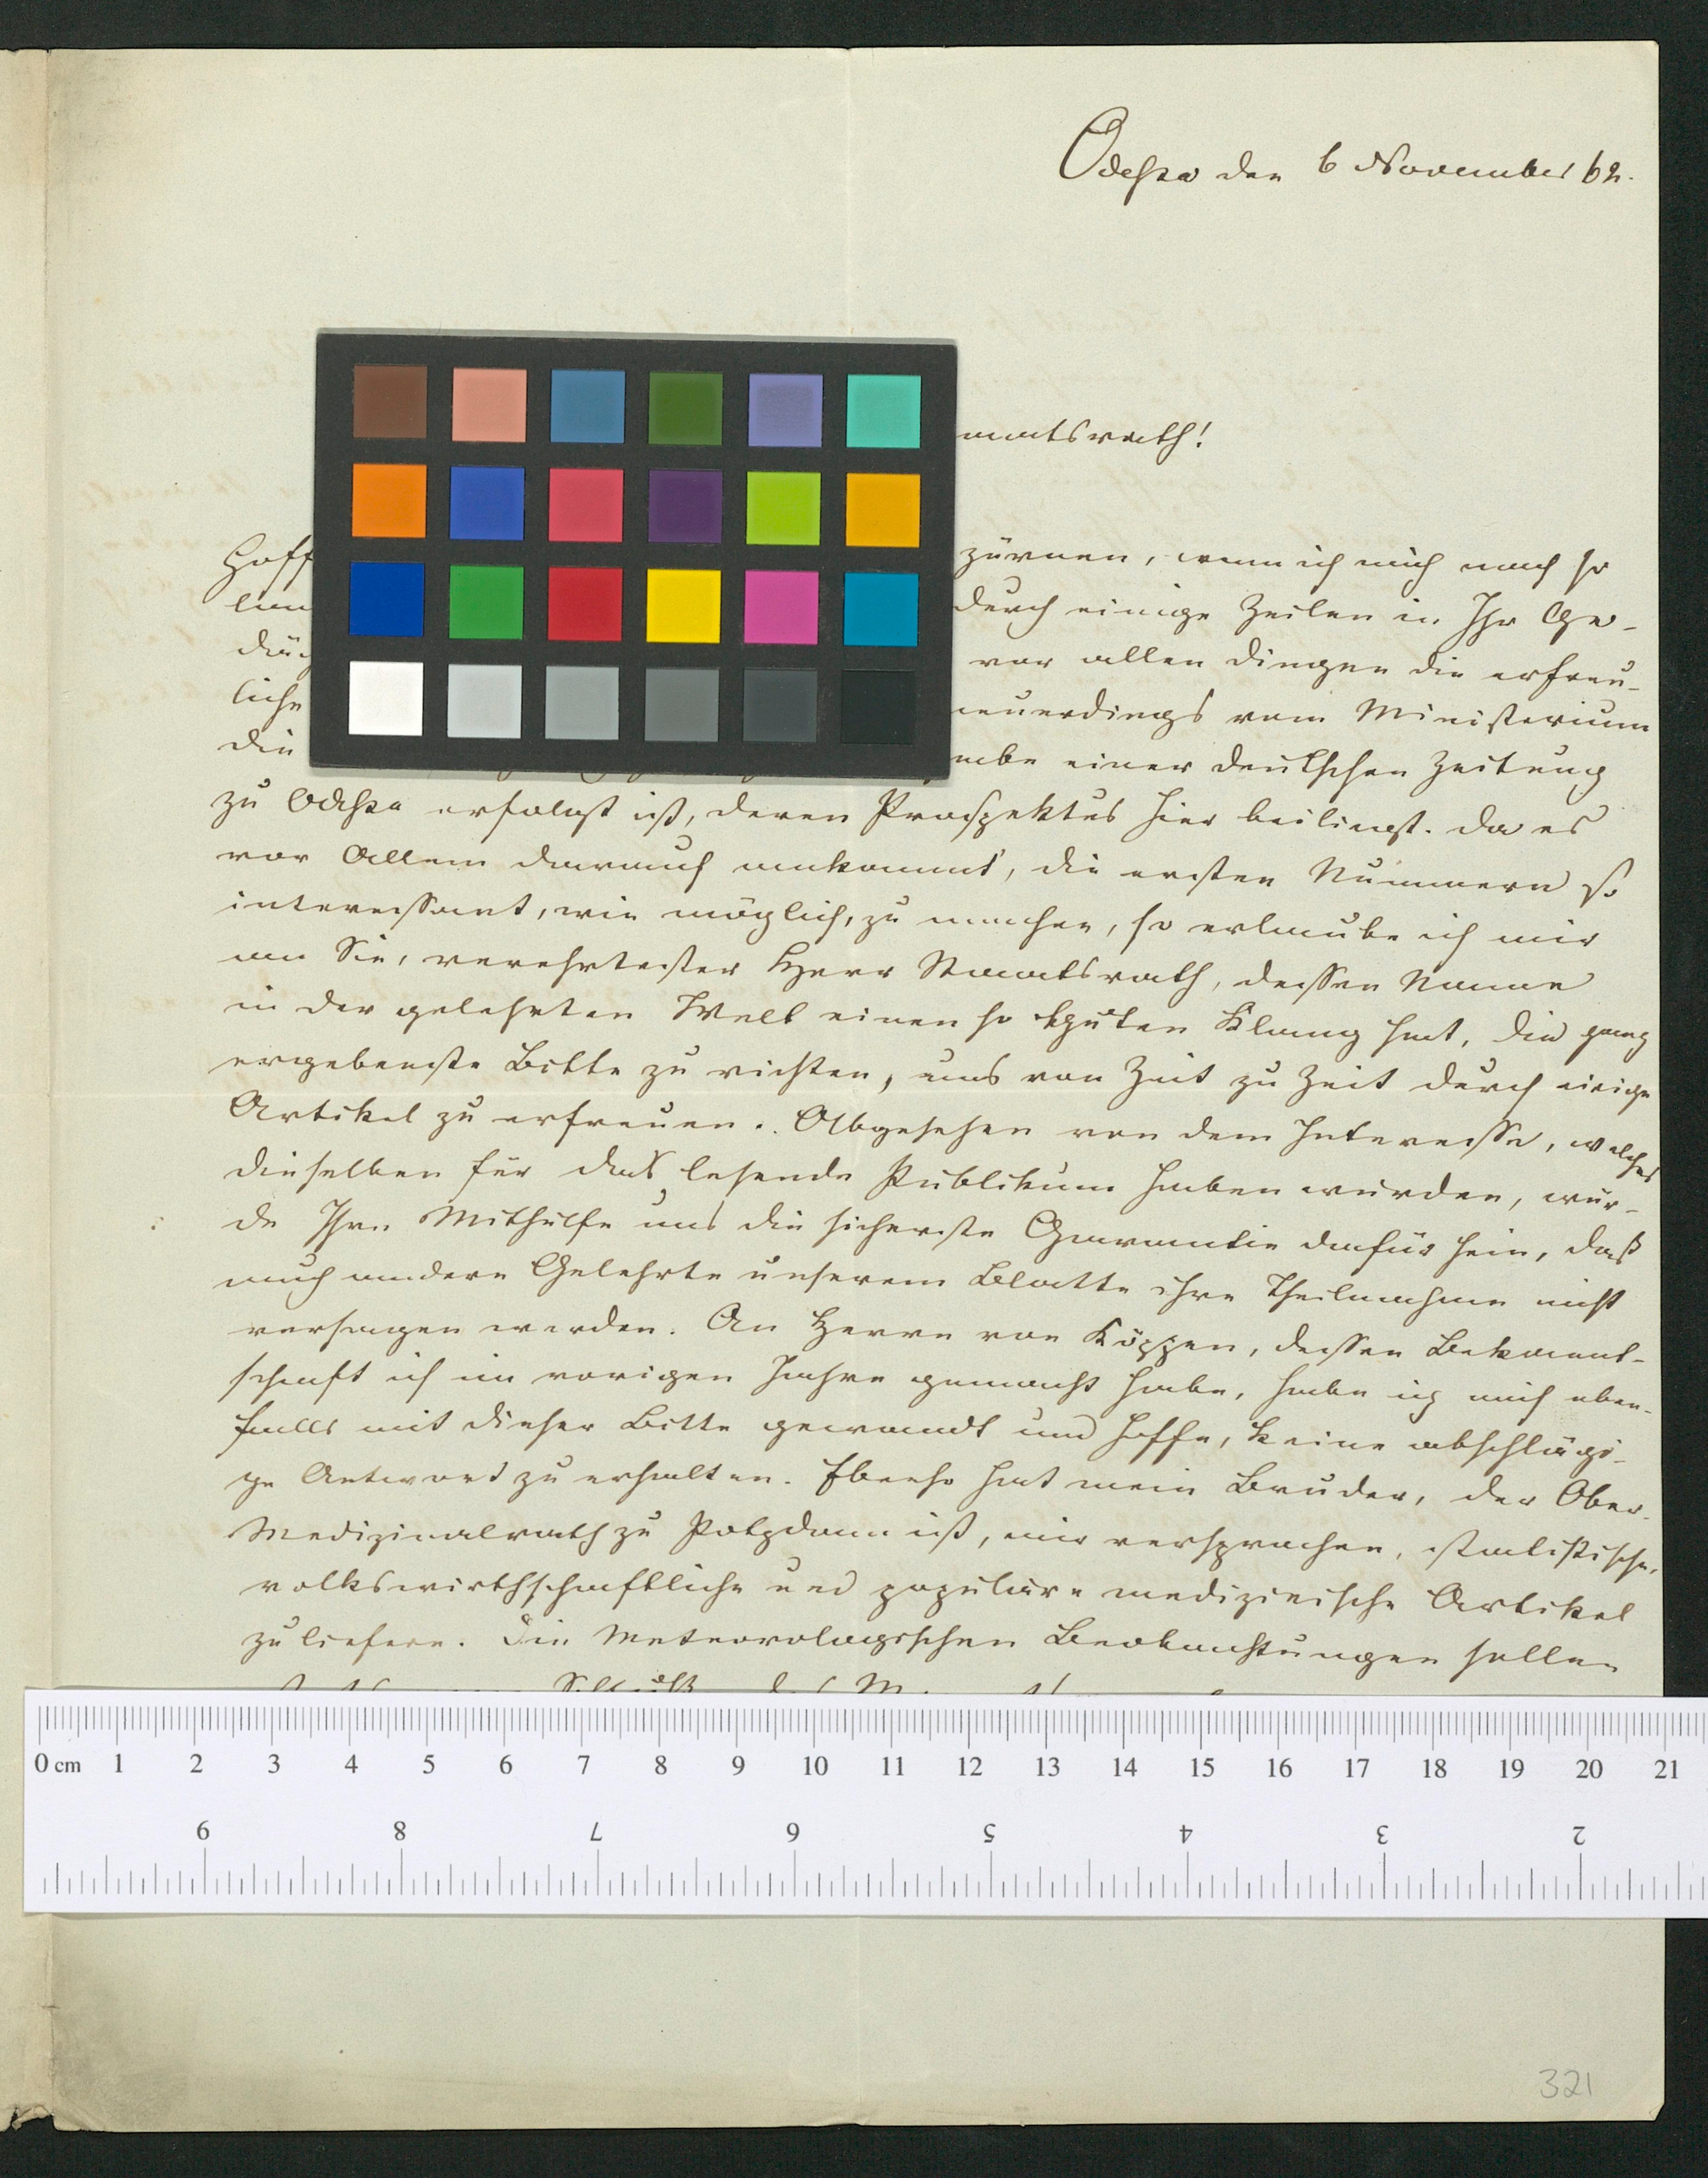 Odessa den 6 November 62.
aatsrath!
Hoff zürnen, wenn ich mich nach so
lan durch einige Zeilen in Ihr Ge-
däc vor allen Dingen die erfreu-
liche neuerdings vom Ministerium
die abe einer deutschen Zeitung
zu Odessa erfolgt ist, deren Prospektus hier beiliegt. Da es
vor Allem darauf ankommt, die ersten Nummern so
interessant, wie möglich, zu machen, so erlaube ich mir
an Sie, verehrtester Herr Staatsrath, dessen Name
in der gelehrten Welt einen so guten Klang hat, die ganz
ergebenste Bitte zu richten, uns von Zeit zu Zeit durch einige
Artikel zu erfreuen. Abgesehen von dem Interesse, welches
dieselben für das lesende Publikum haben würden, wür-
de Ihre Mithülfe uns die sicherste Garantie dafür sein, daß
auch andere Gelehrte unserem Blatte ihre Theilnahme nicht
versagen werden. An Herrn von Köppen, dessen Bekannt-
schaft ich im vorigen Jahre gemacht habe, habe ich mich eben-
falls mit dieser Bitte gewandt und hoffe, keine abschlägi-
ge Antwort zu erhalten. Ebenso hat mein Bruder, der Ober-
Medizinalrath zu Potzdam ist, mir versprochen, statistische,
volkswirthschaftliche und populäre medizinische Artikel
zu liefern. Die Meteorologischen Beobachtungen sollen
0 cm 1 2 3 4 5 6 7 8 9 10 11 12 13 14 15 16 17 18 19 20 21
9 8 7 6 5 4 3 2
321